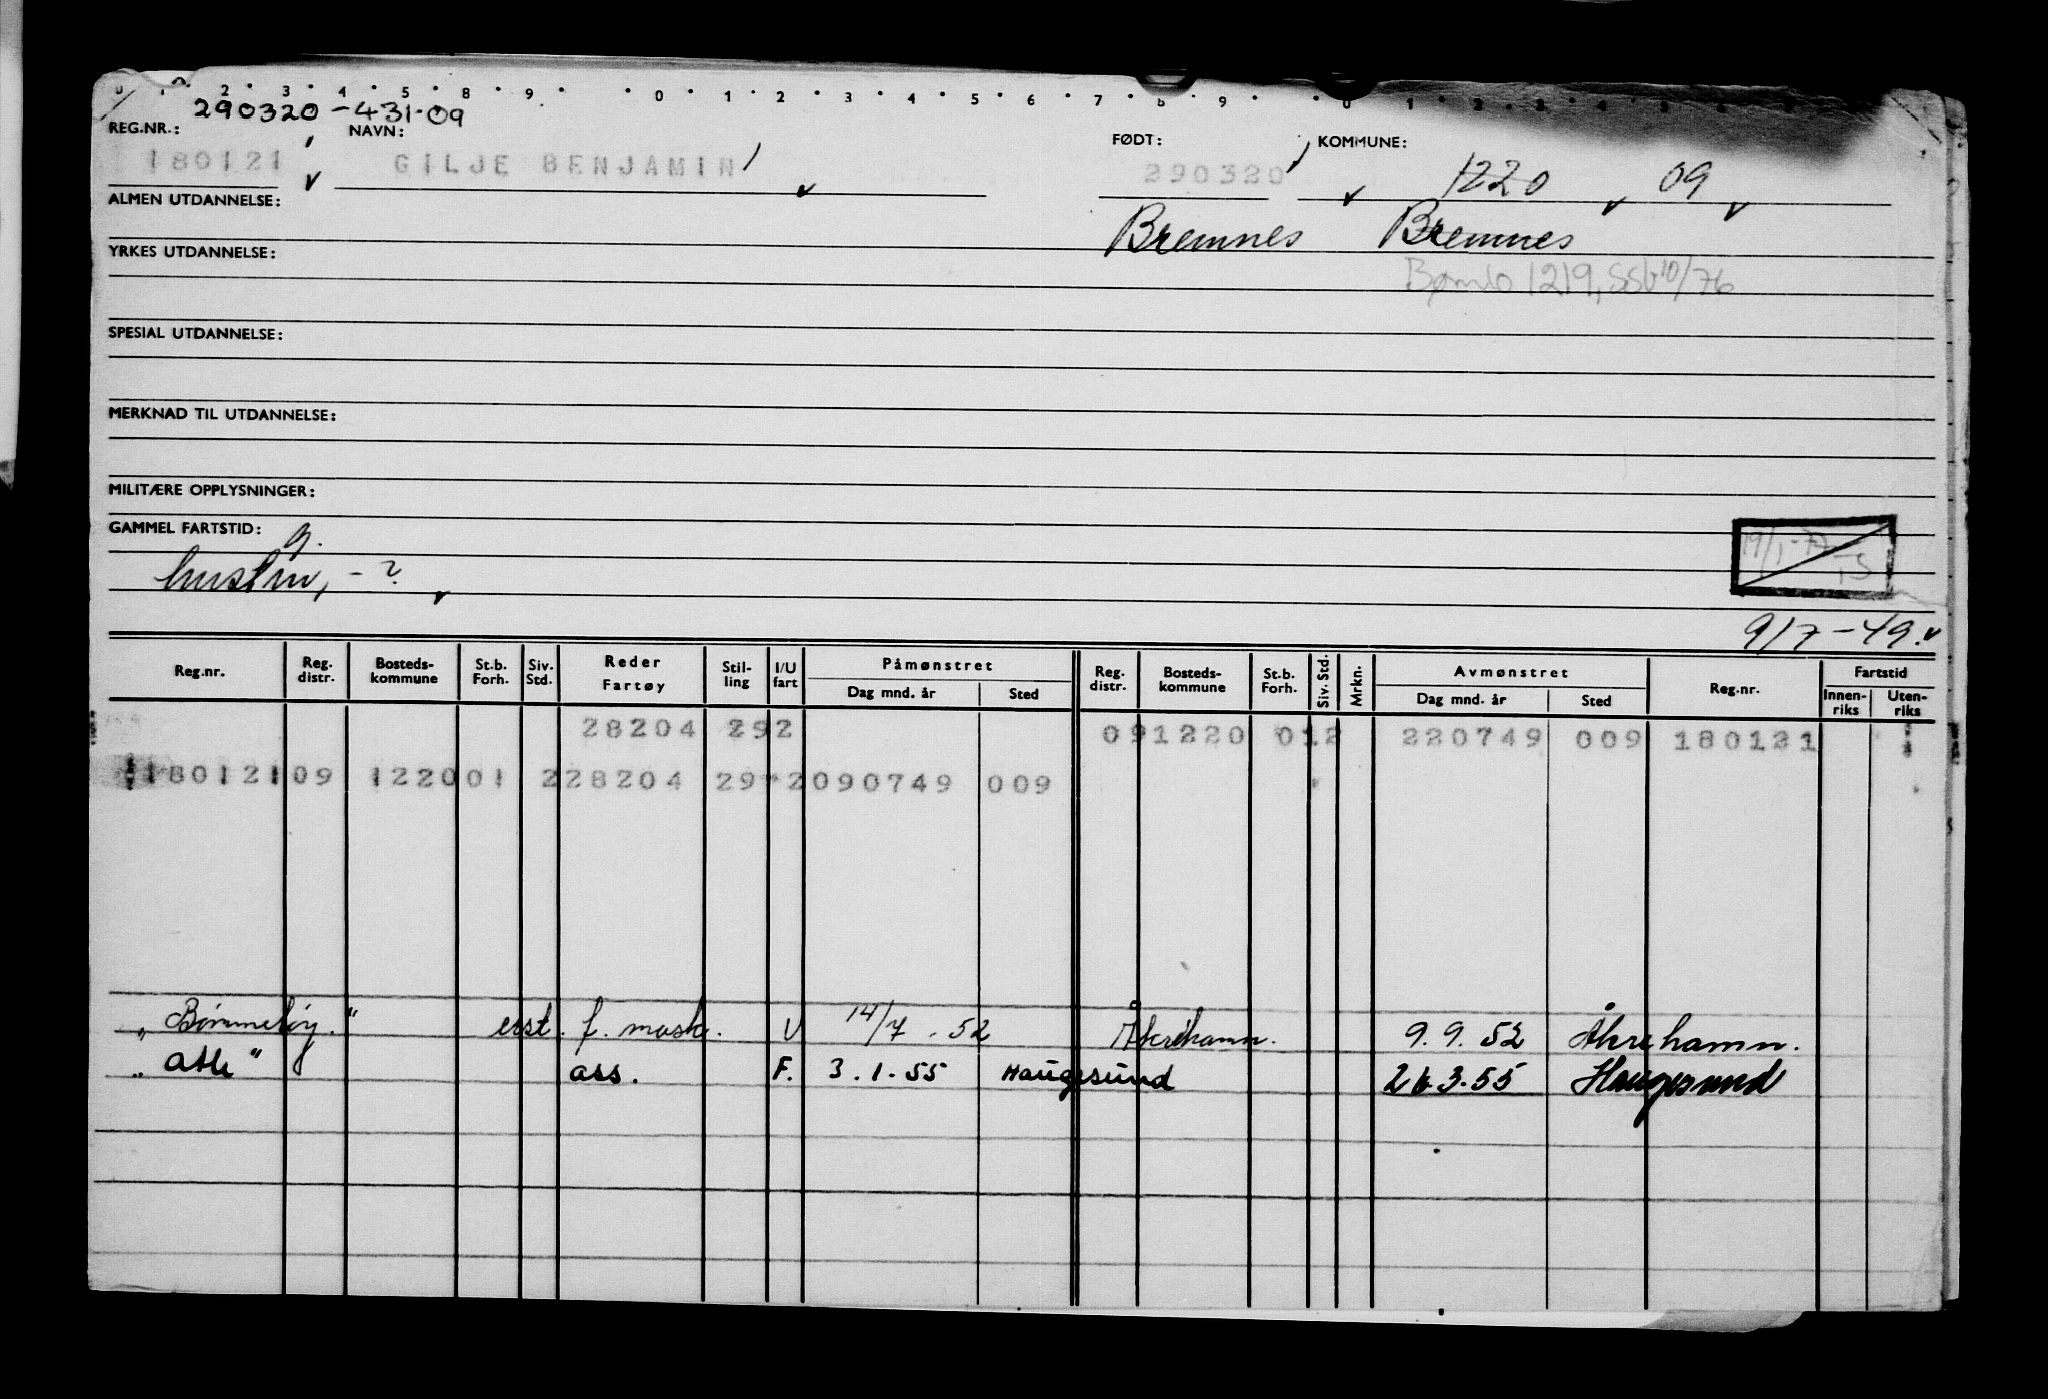 0 1 2 3 4 5 6 8 9 0 1 2 3 4 5 6 7 8 9 0 1 2 3 4 5
290320-431.09
REG.NR.: NAVN: FØDT: KOMMUNE:
180121 GILJE BENJAMIN 290320 1220 09
ALMEN UTDANNELSE:
Bremnes Bremnes
YRKES UTDANNELSE:
Bømlo 1219, SSb 10/76
SPESIAL UTDANNELSE:
MERKNAD TIL UTDANNELSE:
MILITÆRE OPPLYSNINGER:
GAMMEL FARTSTID: g.
19/1-77
, - ?
9/7-49.
Reg.nr. Reg. distr. Bosteds-kommune St.b. Forh. Siv. Std. Reder Fartøy Stil-ling I/U fart Påmønstret Dag mnd. år Sted Reg. distr. Bosteds-kommune St.b. Forh. Siv. Std. Mrkn. Avmønstret Dag mnd. år Sted Reg.nr. Fartstid Innen-riks Uten-riks
28204 292 091220 012 220749 009 180121
180121 09 1220 01 2 28204 29 2 090749 009
„Bømmeløy." erst. f. mask. U 14/7-52 Åkrehamn. 9.9.52 Åkrehamn.
„Atle" ass. F. 3.1.55 Haugesund 26.3.55 Haugesund